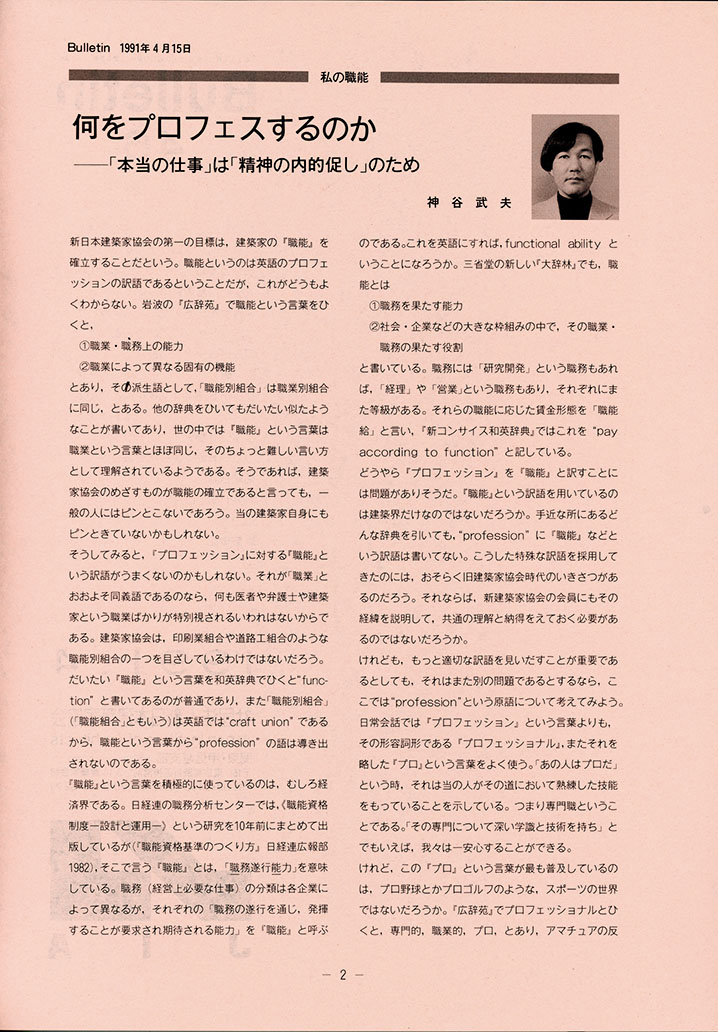 Bulletin 1991年4月15日
私の職能
何をプロフェスするのか
──「本当の仕事」は「精神の内的促し」のため
神谷武夫
新日本建築家協会の第一の目標は，建築家の『職能』を
確立することだという。職能というのは英語のプロフェ
ッションの訳語であるということだが，これがどうもよ
くわからない。岩波の『広辞苑』で職能という言葉をひ
くと，
①職業・職務上の能力
②職業によって異なる固有の機能
とあり，その派生語として，「職能別組合」は職業別組合
に同じ，とある。他の辞典をひいてもだいたい似たよう
なことが書いてあり，世の中では『職能』という言葉は
職業という言葉とほぼ同じ，そのちょっと難しい言い方
として理解されているようである。そうであれば，建築
家協会のめざすものが職能の確立であると言っても，一
般の人にはピンとこないであろう。当の建築家自身にも
ピンときていないかもしれない。
そうしてみると，『プロフェッション』に対する『職能』と
いう訳語がうまくないのかもしれない。それが「職業」と
おおよそ同義語であるのなら，何も医者や弁護士や建築
家という職業ばかりが特別視されるいわれはないからで
ある。建築家協会は，印刷業組合や道路工組合のような
職能別組合の一つを目ざしているわけではないだろう。
だいたい『職能』という言葉を和英辞典でひくと“func-
tion” と書いてあるのが普通であり，また「職能別組合」
（「職能組合」ともいう）は英語では“craft union” である
から，職能という言葉から“profession” の語は導き出
されないのである。
『職能』という言葉を積極的に使っているのは，むしろ経
済界である。日経連の職務分析センターでは，《職能資格
制度―設計と運用―》という研究を10年前にまとめて出
版しているが(『職能資格基準のつくり方』日経連広報部
1982)，そこで言う『職能』とは，「職務遂行能力」を意味
している。職務（経営上必要な仕事）の分類は各企業に
よって異なるが，それぞれの「職務の遂行を通じ，発揮
することが要求され期待される能力」を『職能』と呼ぶ
のである。これを英語にすれば，functional ability と
いうことになろうか。三省堂の新しい『大辞林』でも，職
能とは
①職務を果たす能力
②社会・企業などの大きな枠組みの中で，その職業・
職務の果たす役割
と書いている。職務には「研究開発」という職務もあれ
ば，「経理」や「営業」という職務もあり，それぞれにま
た等級がある。それらの職能に応じた賃金形態を「職能
給」と言い，『新コンサイス和英辞典』ではこれを “pay
according to function” と記している。
どうやら『プロフェッション』を『職能』と訳すことに
は問題がありそうだ。『職能』という訳語を用いているの
は建築界だけなのではないだろうか。手近な所にあるど
んな辞典を引いても，“profession” に『職能』などと
いう訳語は書いてない。こうした特殊な訳語を採用して
きたのには，おそらく旧建築家協会時代のいきさつがあ
るのだろう。それならば，新建築家協会の会員にもその
経緯を説明して，共通の理解と納得をえておく必要があ
るのではないだろうか。
けれども，もっと適切な訳語を見いだすことが重要であ
るとしても，それはまた別の問題であるとするなら，こ
こでは“profession”という原語について考えてみよう。
日常会話では『プロフェッション』という言葉よりも，
その形容詞形である『プロフェッショナル』，またそれを
略した『プロ』という言葉をよく使う。「あの人はプロだ」
という時，それは当の人がその道において熟練した技能
をもっていることを示している。つまり専門職というこ
とである。「その専門について深い学識と技術を持ち」と
でもいえば，我々は一安心することができる。
けれど，この『プロ』という言葉が最も普及しているの
は，プロ野球とかプロゴルフのような，スポーツの世界
ではないだろうか。『広辞苑』でプロフェッショナルとひ
くと，専門的，職業的，プロ，とあり，アマチュアの反
－ 2 －